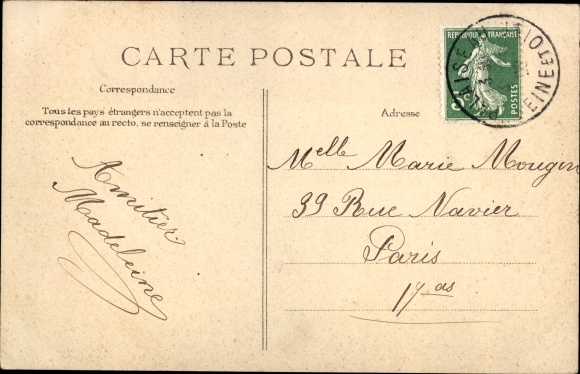 CARTE POSTALE
Correspondance
Tous les pays étrangers n'acceptent pas la
correspondance au recto, se renseigner à la Poste
Amitiés
Madeleine
REPUBLIQUE FRANÇAISE
POSTES
SEINE ET OISE
Adresse
Melle Marie Mougin
39 Rue Navier
Paris
17 as